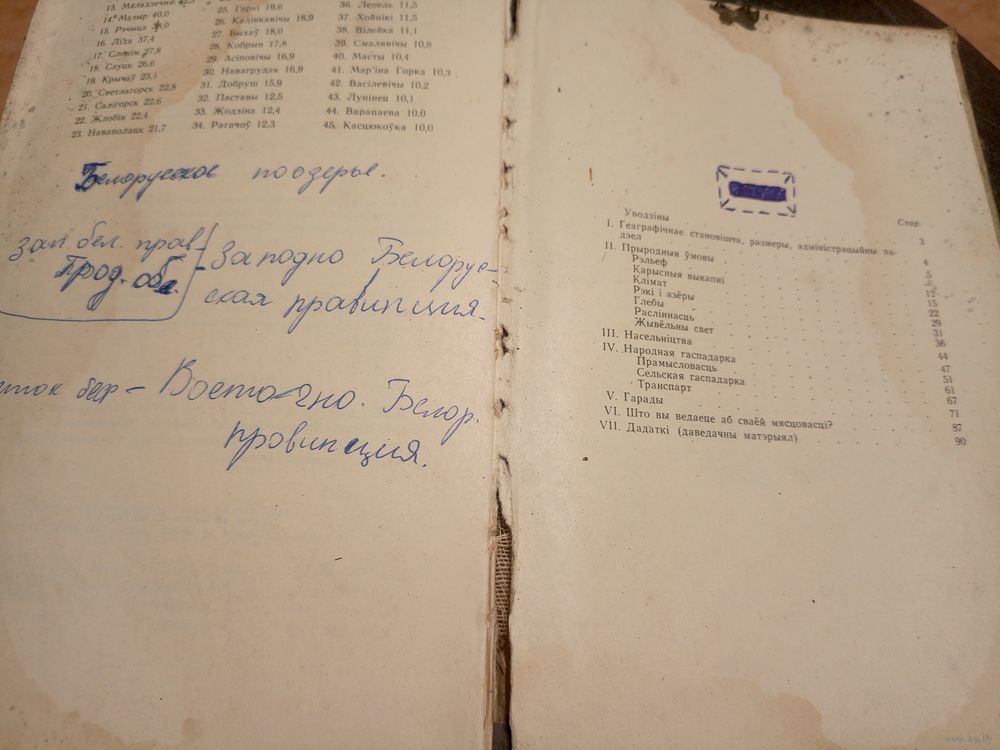 13. Маладзечна
14. Мазыр 40,0
15. Рэчыца
16. Ліда 37,4
17. Слонім 27,8
18. Слуцк 26,6
19. Крычаў 23,1
20. Светлагорск 22,8
21. Салігорск 22,6
22. Жлобін 22,4
23. Наваполацк 21,7
25. Горкі 19,6
26. Калінкавічы 18,9
27. Быхаў 18,0
28. Кобрын 17,8
29. Асіповічы 16,9
30. Навагрудак 16,9
31. Добруш 15,9
32. Паставы 12,5
33. Жодзіна 12,4
34. Рагачоў 12,3
36. Лепель 11,5
37. Хойнікі 11,5
38. Вілейка 11,1
39. Смалявічы 10,8
40. Масты 10,4
41. Мар'іна Горка 10,3
42. Васілевічы 10,2
43. Лунінец 10,1
44. Варапаева 10,0
45. Касцюкоўка 10,0
Белорусское поозерье.
зап. бел. прав
Прод. обл.
Западно Белорус-
ская правинция.
Восточно. Белор.
провинция.
Стар.
Уводзіны 3
I. Геаграфічнае становішча, размеры, адміністрацыйны па-
дзел 4
II. Прыродныя ўмовы 5
Рэльеф
Карысныя выкапні 12
Клімат 15
Рэкі і азёры 22
Глебы 29
Расліннасць 31
Жывёльны свет 36
III. Насельніцтва 44
IV. Народная гаспадарка 47
Прамысловасць 51
Сельская гаспадарка 61
Транспарт 67
V. Гарады 71
VI. Што вы ведаеце аб сваёй мясцовасці? 87
VII. Дадаткі (даведачны матэрыял) 90